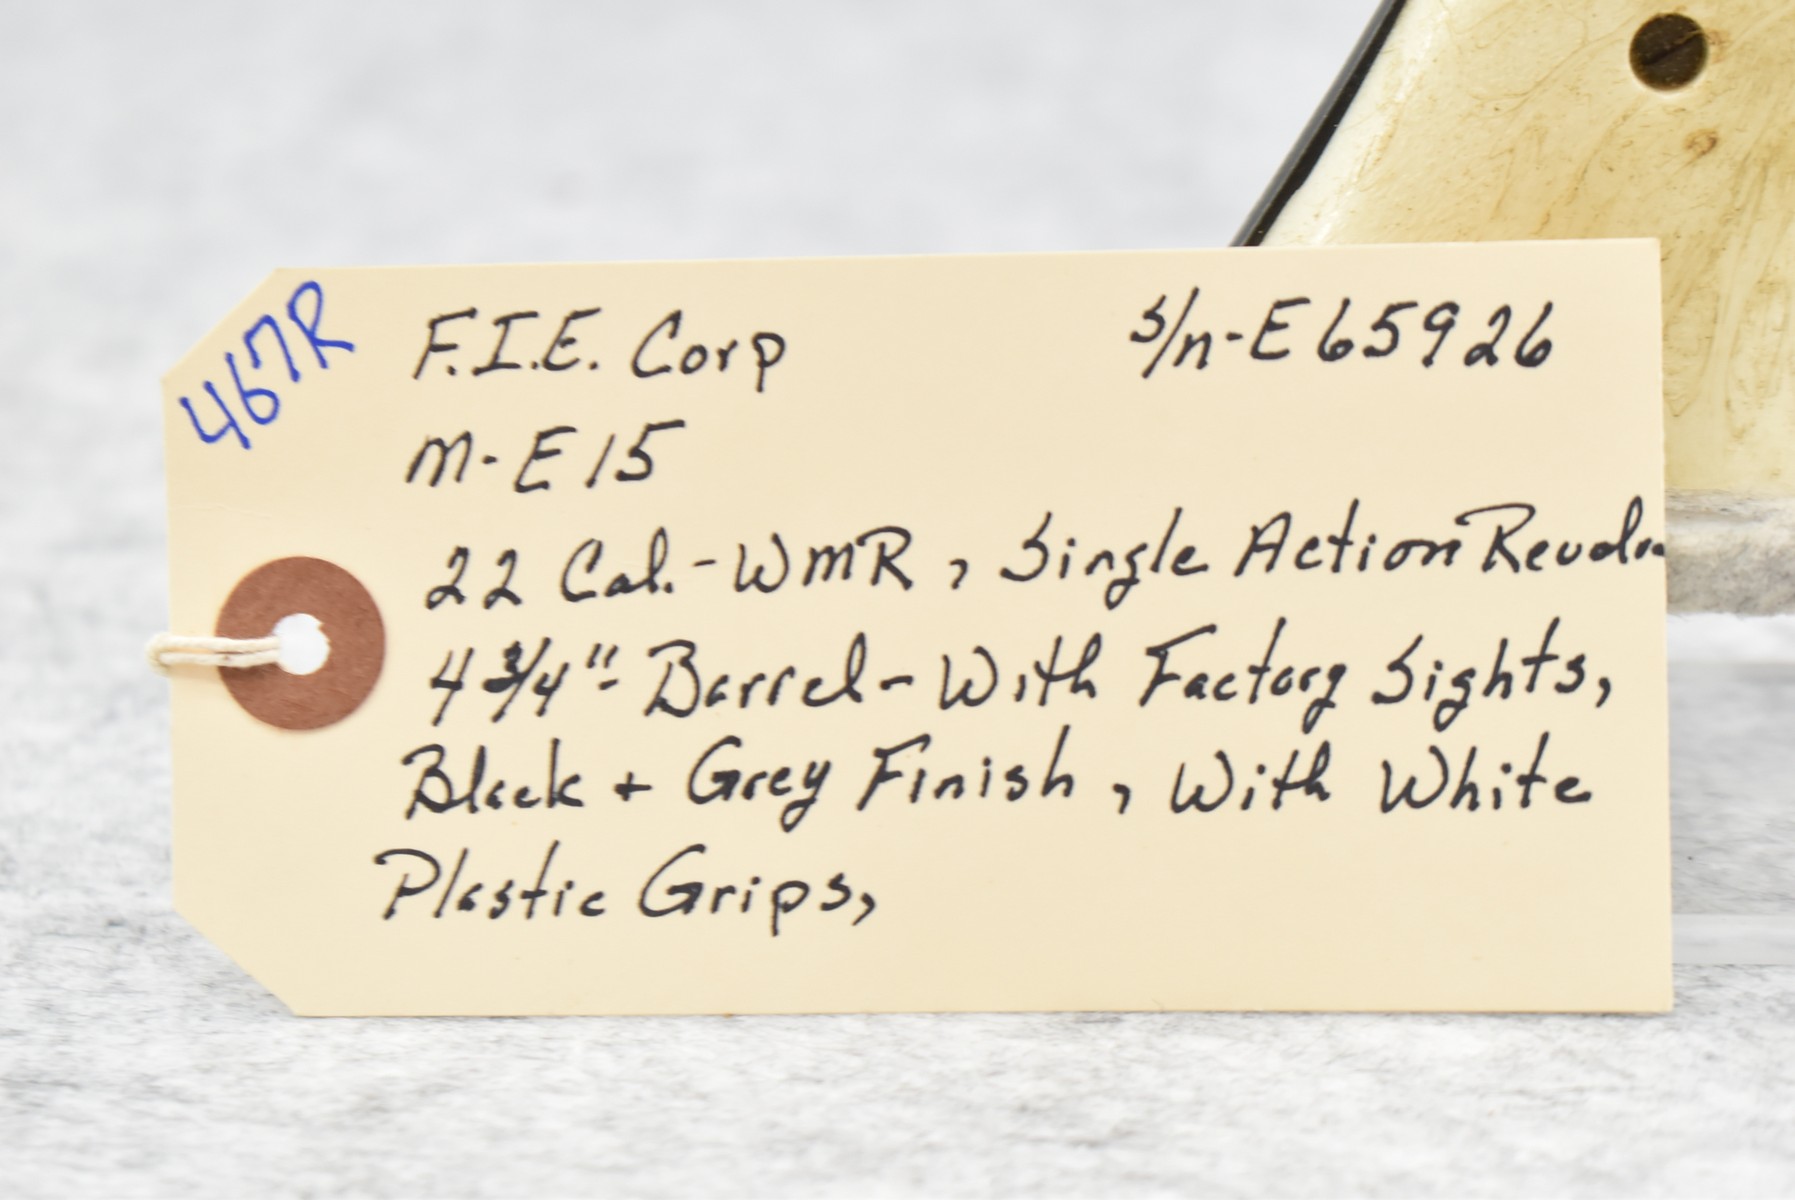 467R
F.I.E. Corp s/n-E65926
M-E15
22 Cal.-WMR, Single Action
4 3/4"- Barrel-With Factory Sights,
Black + Grey Finish, With White
Plastic Grips,